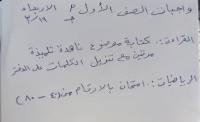 واجبات الصف الأول م الاربعاء
٣/١٩
القراءة: كتابة موضوع ناهدة تلميذة
مرتين مع تنزيل الكلمات على الدفتر
الرياضيات: امتحان بالارقام من (٤ - ٨٠)